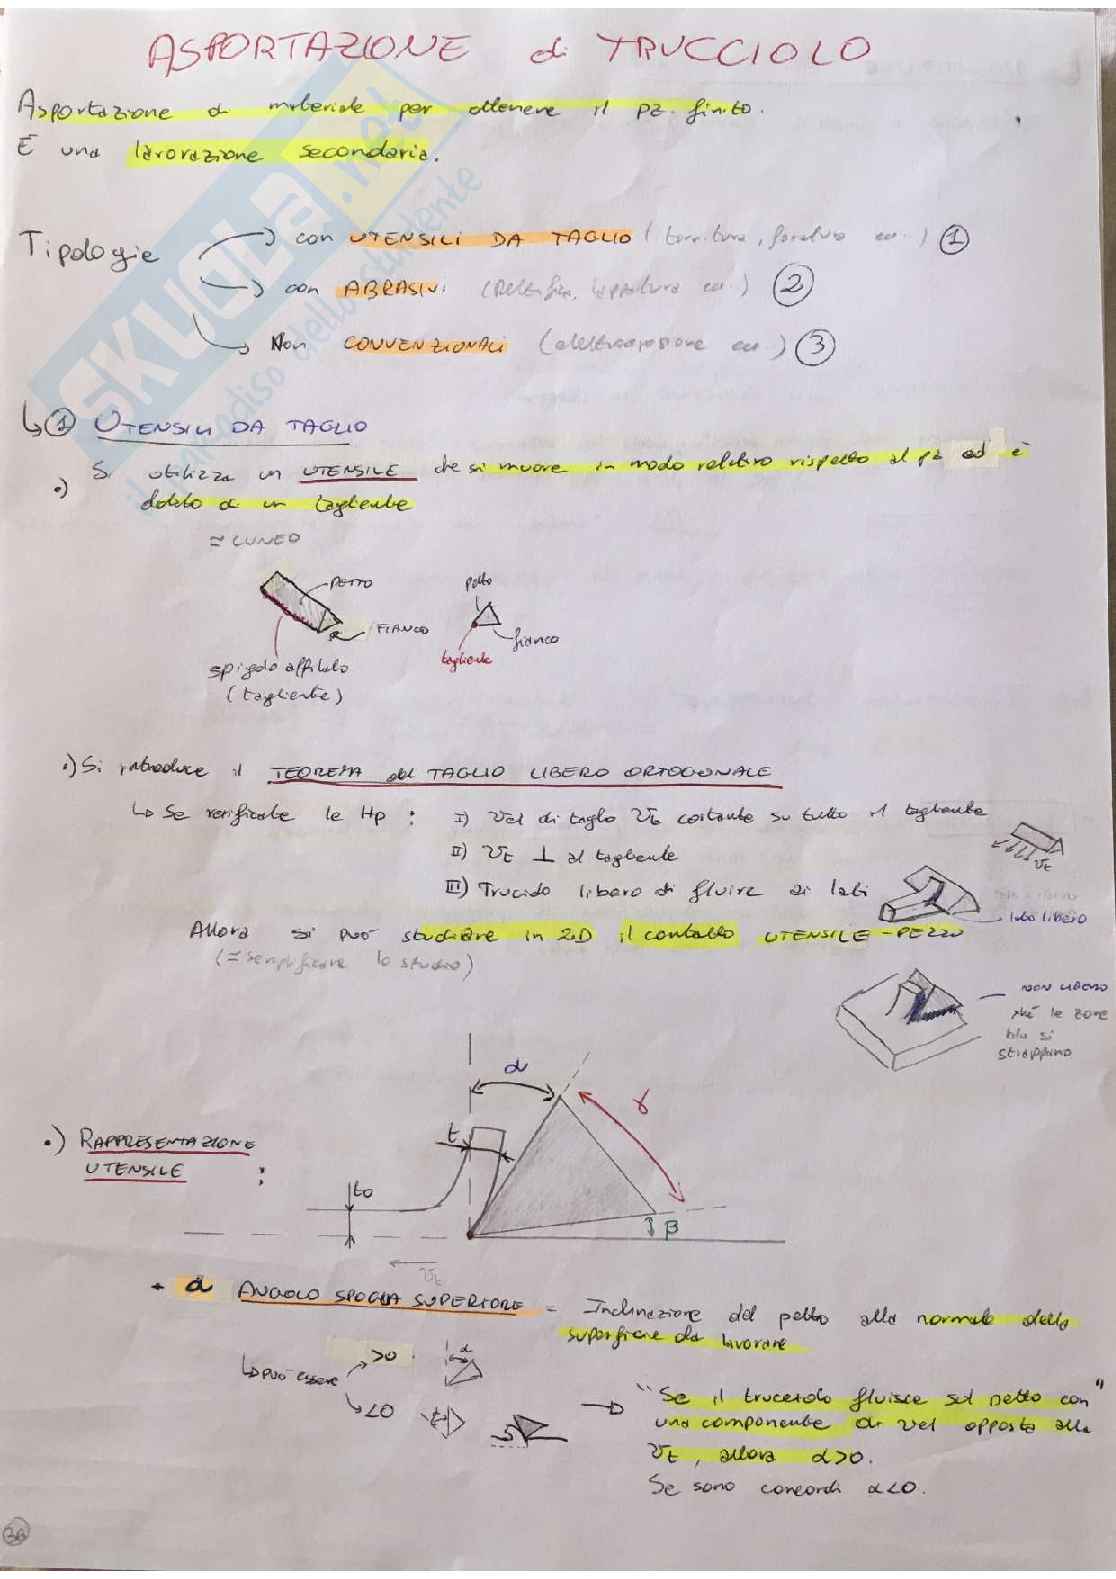 ASPORTAZIONE di TRUCCIOLO
Asportazione di materiale per ottenere il pz. finito.
È una lavorazione secondaria.
Tipologie
con UTENSILI DA TAGLIO (tornitura, foratura ecc..) 1
con ABRASIVI (Rettifica, lappatura ecc..) 2
Non CONVENZIONALI (elettroerosione ecc..) 3
SKUOLA.net
il paradiso dello studente
↳ 1 UTENSILI DA TAGLIO
•) Si utilizza un UTENSILE che si muove in modo relativo rispetto al pz ed è
dotato di un tagliente
≃ CUNEO
PETTO
FIANCO
spigolo affilato
(tagliente)
petto
fianco
tagliente
•) Si introduce il TEOREMA del TAGLIO LIBERO ORTOGONALE
↳ Se verificate le Hp :
I) Vel di taglio Vt costante su tutto il tagliente
II) Vt ⊥ al tagliente
III) Truciolo libero di fluire ai lati
Vt
lato libero
Allora si può studiare in 2D il contatto UTENSILE-PEZZO
(= semplificare lo studio)
NON LIBERO
xké le zone
blu si
strappano
•) RAPPRESENTAZIONE
UTENSILE :
α
γ
t
to
β
Vt
• α ANGOLO SPOGLIA SUPERIORE = Inclinazione del petto alla normale della
superficie da lavorare
↳ può essere
>0
α
<0
→ "Se il truciolo fluisce sul petto con"
una componente di vel opposta alla
Vt, allora α>0.
Se sono concordi α<0.
36